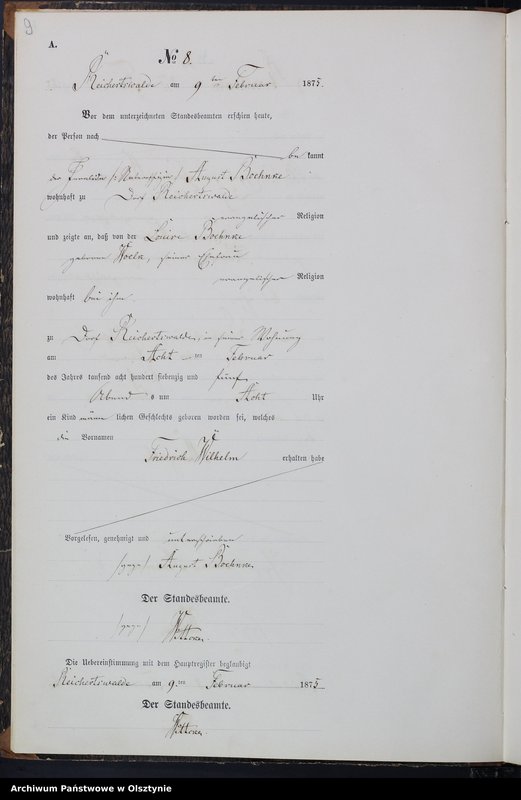 9
A.
No 8.
Reichertswalde am 9 ten Februar 1875.
Vor dem unterzeichneten Standesbeamten erschien heute,
der Person nach
be kannt
der August Böehnke
wohnhaft zu Dorf Reichertswalde
evangelischer Religion
und zeigte an, daß von der Louise Böehnke
geborene Woelk, seiner Ehefrau
evangelischer Religion
wohnhaft bei ihm
zu Dorf Reichertswalde, in seiner Wohnung
am Acht ten Februar
des Jahres tausend acht hundert siebenzig und fünf
Abend s um Acht Uhr
ein Kind männ lichen Geschlechts geboren worden sei, welches
die Vornamen
Friedrich Wilhelm erhalten habe
Vorgelesen, genehmigt und unterschrieben
August Böehnke.
Der Standesbeamte.
Die Uebereinstimmung mit dem Hauptregister beglaubigt
Reichertswalde am 9 ten Februar 1875
Der Standesbeamte.
Archiwum Państwowe w Olsztynie